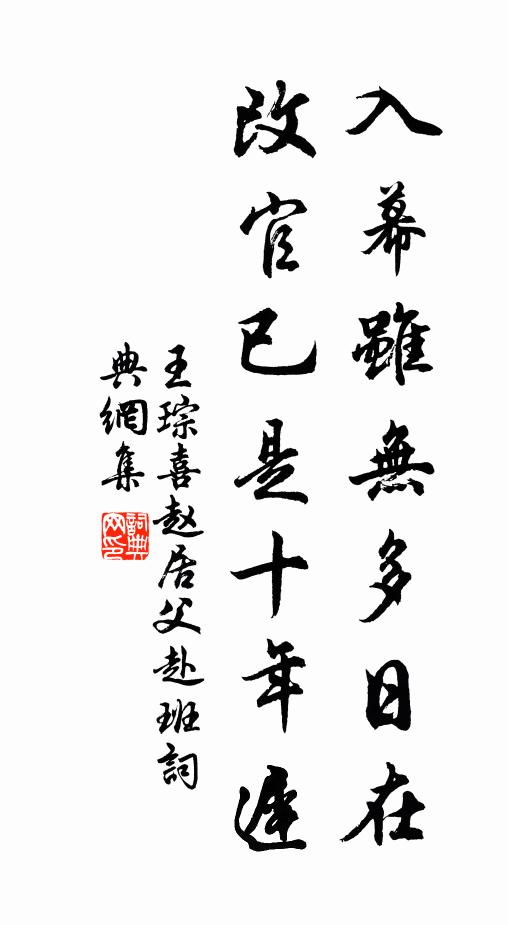 入幕雖無多日在
改官已是十年遲
王琮喜赵居父赴班詞
典網集
詞典
网印